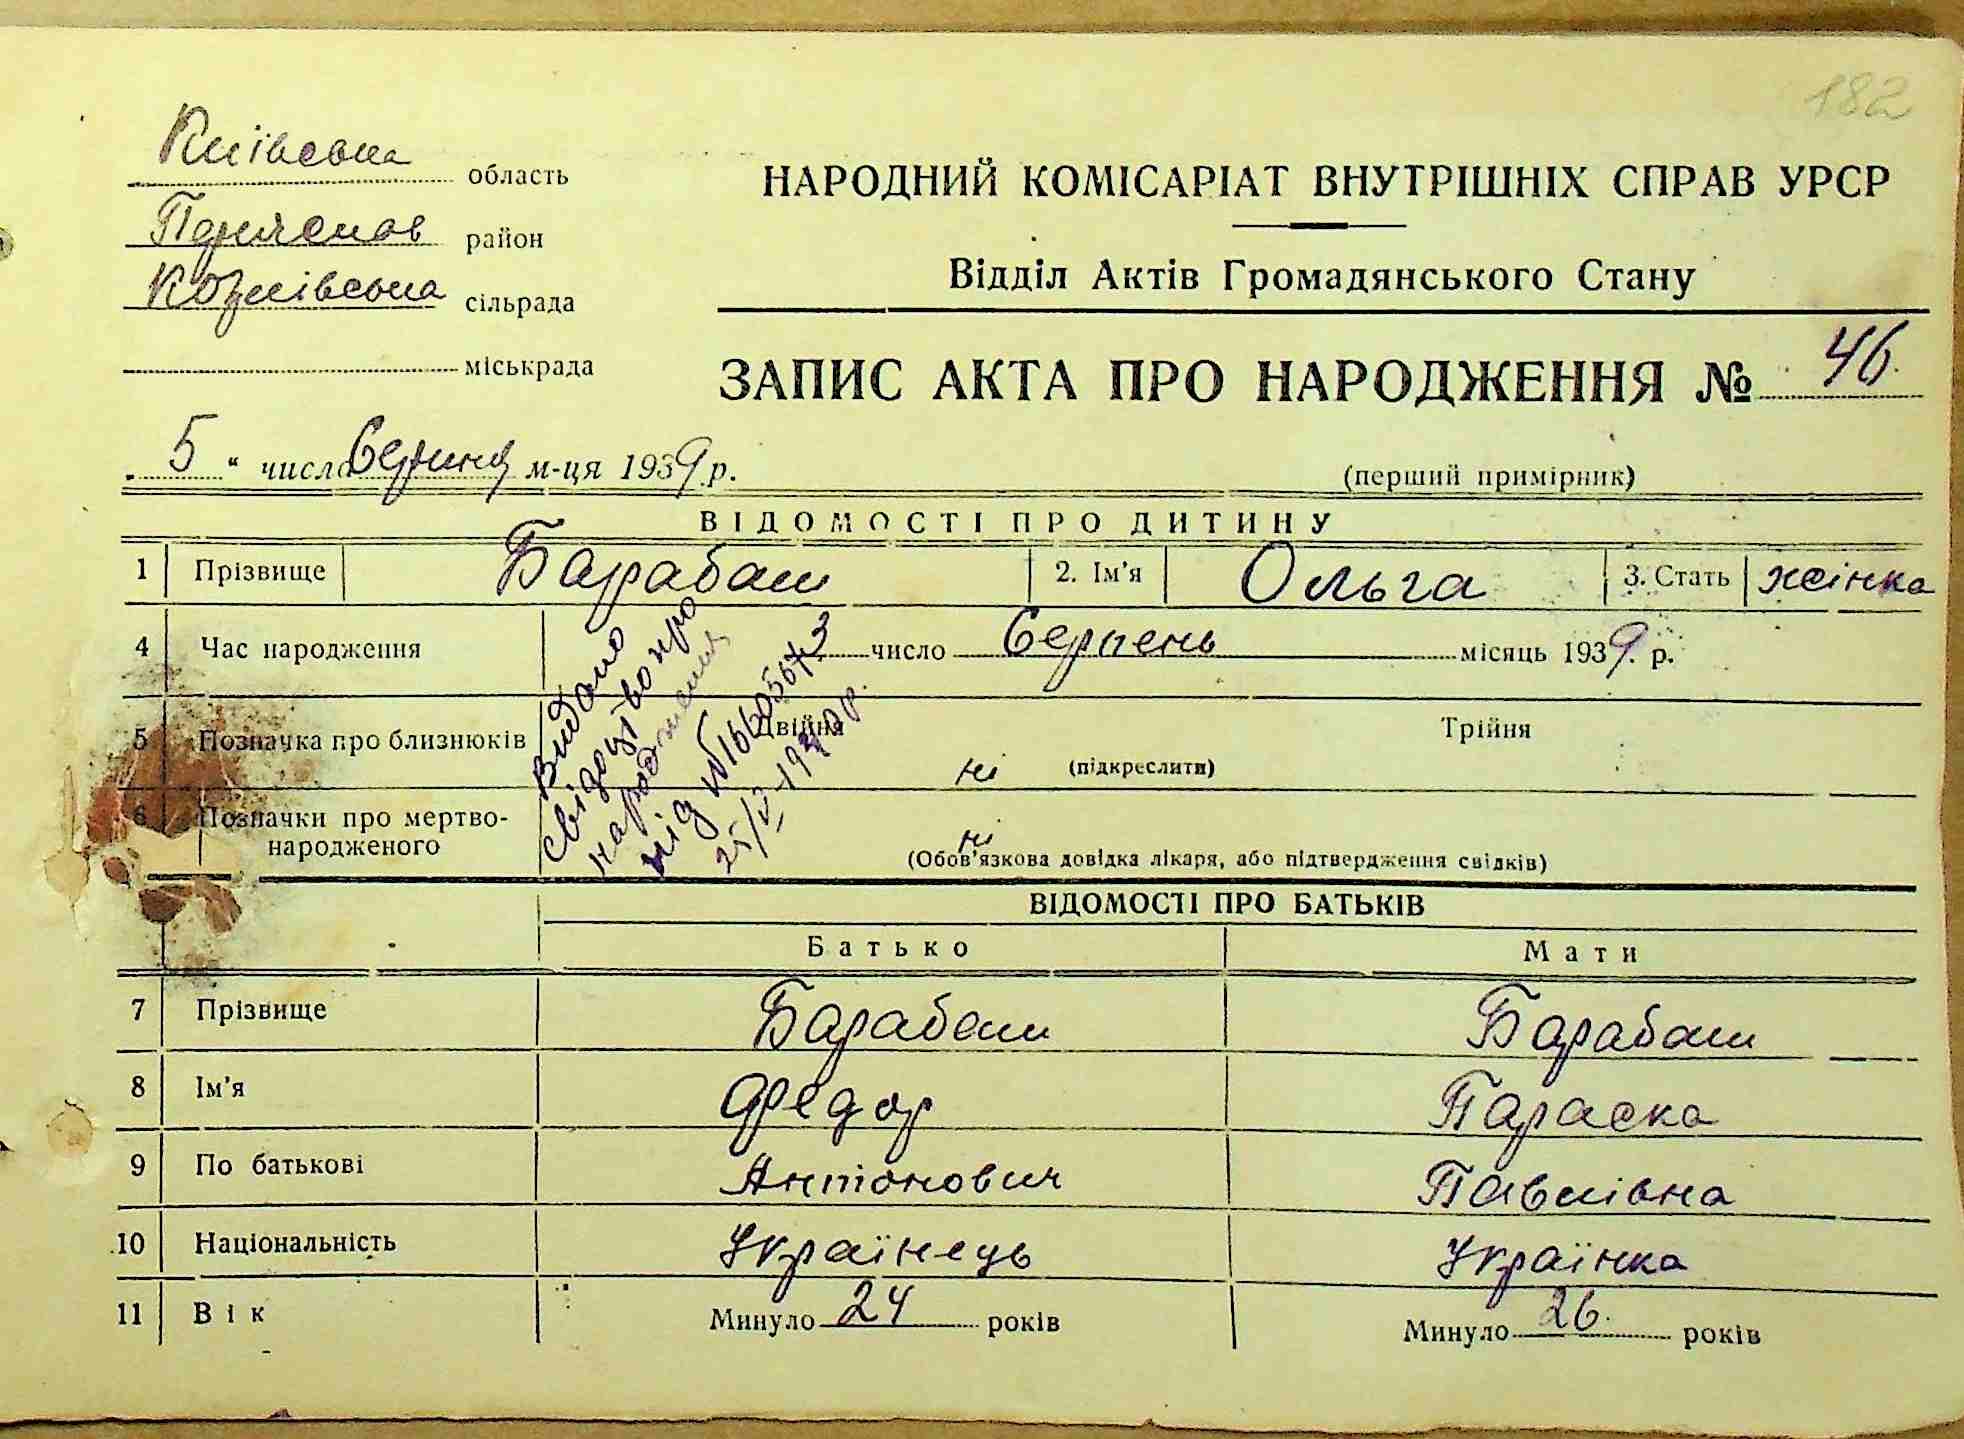 182
Київська область
район
сільрада
міськрада
НАРОДНИЙ КОМІСАРІАТ ВНУТРІШНІХ СПРАВ УРСР
Відділ Актів Громадянського Стану
ЗАПИС АКТА ПРО НАРОДЖЕННЯ № 46
5 " число Серпня м-ця 1939 р.
(перший примірник)
ВІДОМОСТІ ПРО ДИТИНУ
1 Прізвище Барабаш 2. Ім'я Ольга 3. Стать жінка
4 Час народження 3 число Серпень місяць 1939. р.
5 Позначка про близнюків Двійня Трійня
ні (підкреслити)
6 Позначки про мертво-
народженого ні
(Обов'язкова довідка лікаря, або підтвердження свідків)
Видано
свідоцтво про
народження
під
ВІДОМОСТІ ПРО БАТЬКІВ
Батько Мати
7 Прізвище Барабаш Барабаш
8 Ім'я Федор Параска
9 По батькові Антонович Павлівна
10 Національність Українець Українка
11 Вік Минуло 24 років Минуло 26 років